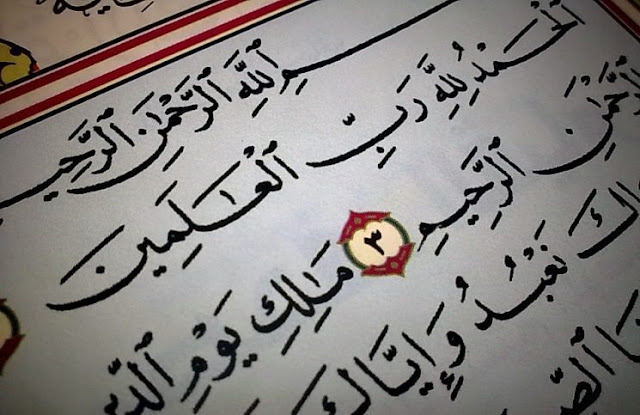 سْمِ ٱللَّهِ ٱلرَّحْمَٰنِ ٱلرَّحِي
ٱلْحَمْدُ لِلَّهِ رَبِّ ٱلْعَٰلَمِينَ
ٱلرَّحْمَٰنِ ٱلرَّحِيمِ ٣ مَٰلِكِ يَوْمِ ٱلدِّ
اكَ نَعْبُدُ وَإِيَّاكَ
نَا ٱلصِّ